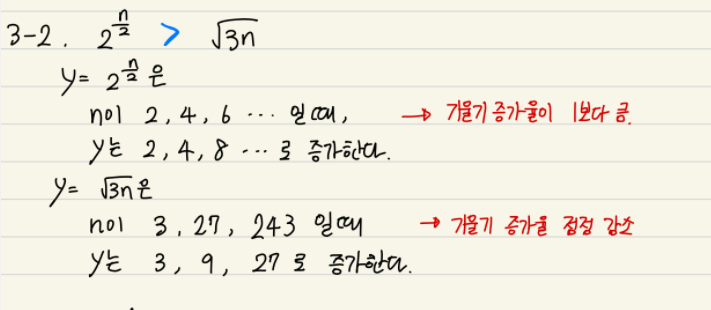 3-2. 2^(n/2) > √3n
y = 2^(n/2) 은
n이 2, 4, 6 ... 일 때, → 기울기 증가율이 1보다 큼.
y는 2, 4, 8 ... 로 증가한다.
y = √3n 은
n이 3, 27, 243 일 때 → 기울기 증가율 점점 감소
y는 3, 9, 27 로 증가한다.